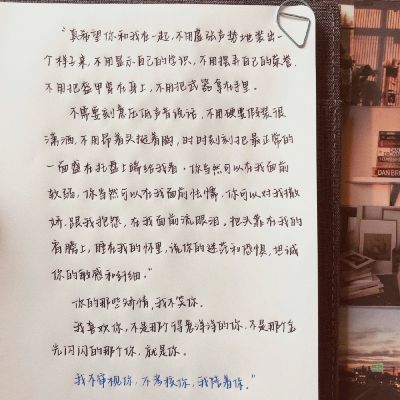 “真希望你和我在一起,不用虚张声势地装出一
个样子来,不用显示自己的学识,不用摆弄自己的荣誉,
不用把盔甲穿在身上,不用把武器拿在手里。
不需要刻意压低声音说话,不用硬要假装很
潇洒,不用昂着头挺着胸,时时刻刻把最正常的
一面盛在托盘上端给我看。你当然可以在我面前
软弱,你当然可以在我面前怯懦,你可以对我撒
娇,跟我抱怨,在我面前流眼泪。把头靠在我的
肩膀上,睡在我的怀里,说你的迷茫和恐惧,坦诚
你的敏感和纤细。”
你的那些矫情,我不笑你。
我喜欢你,不是那个得意洋洋的你,不是那个金
光闪闪的那个你,就是你。
我不审视你,不考核你,我陪着你。”
DAN BR